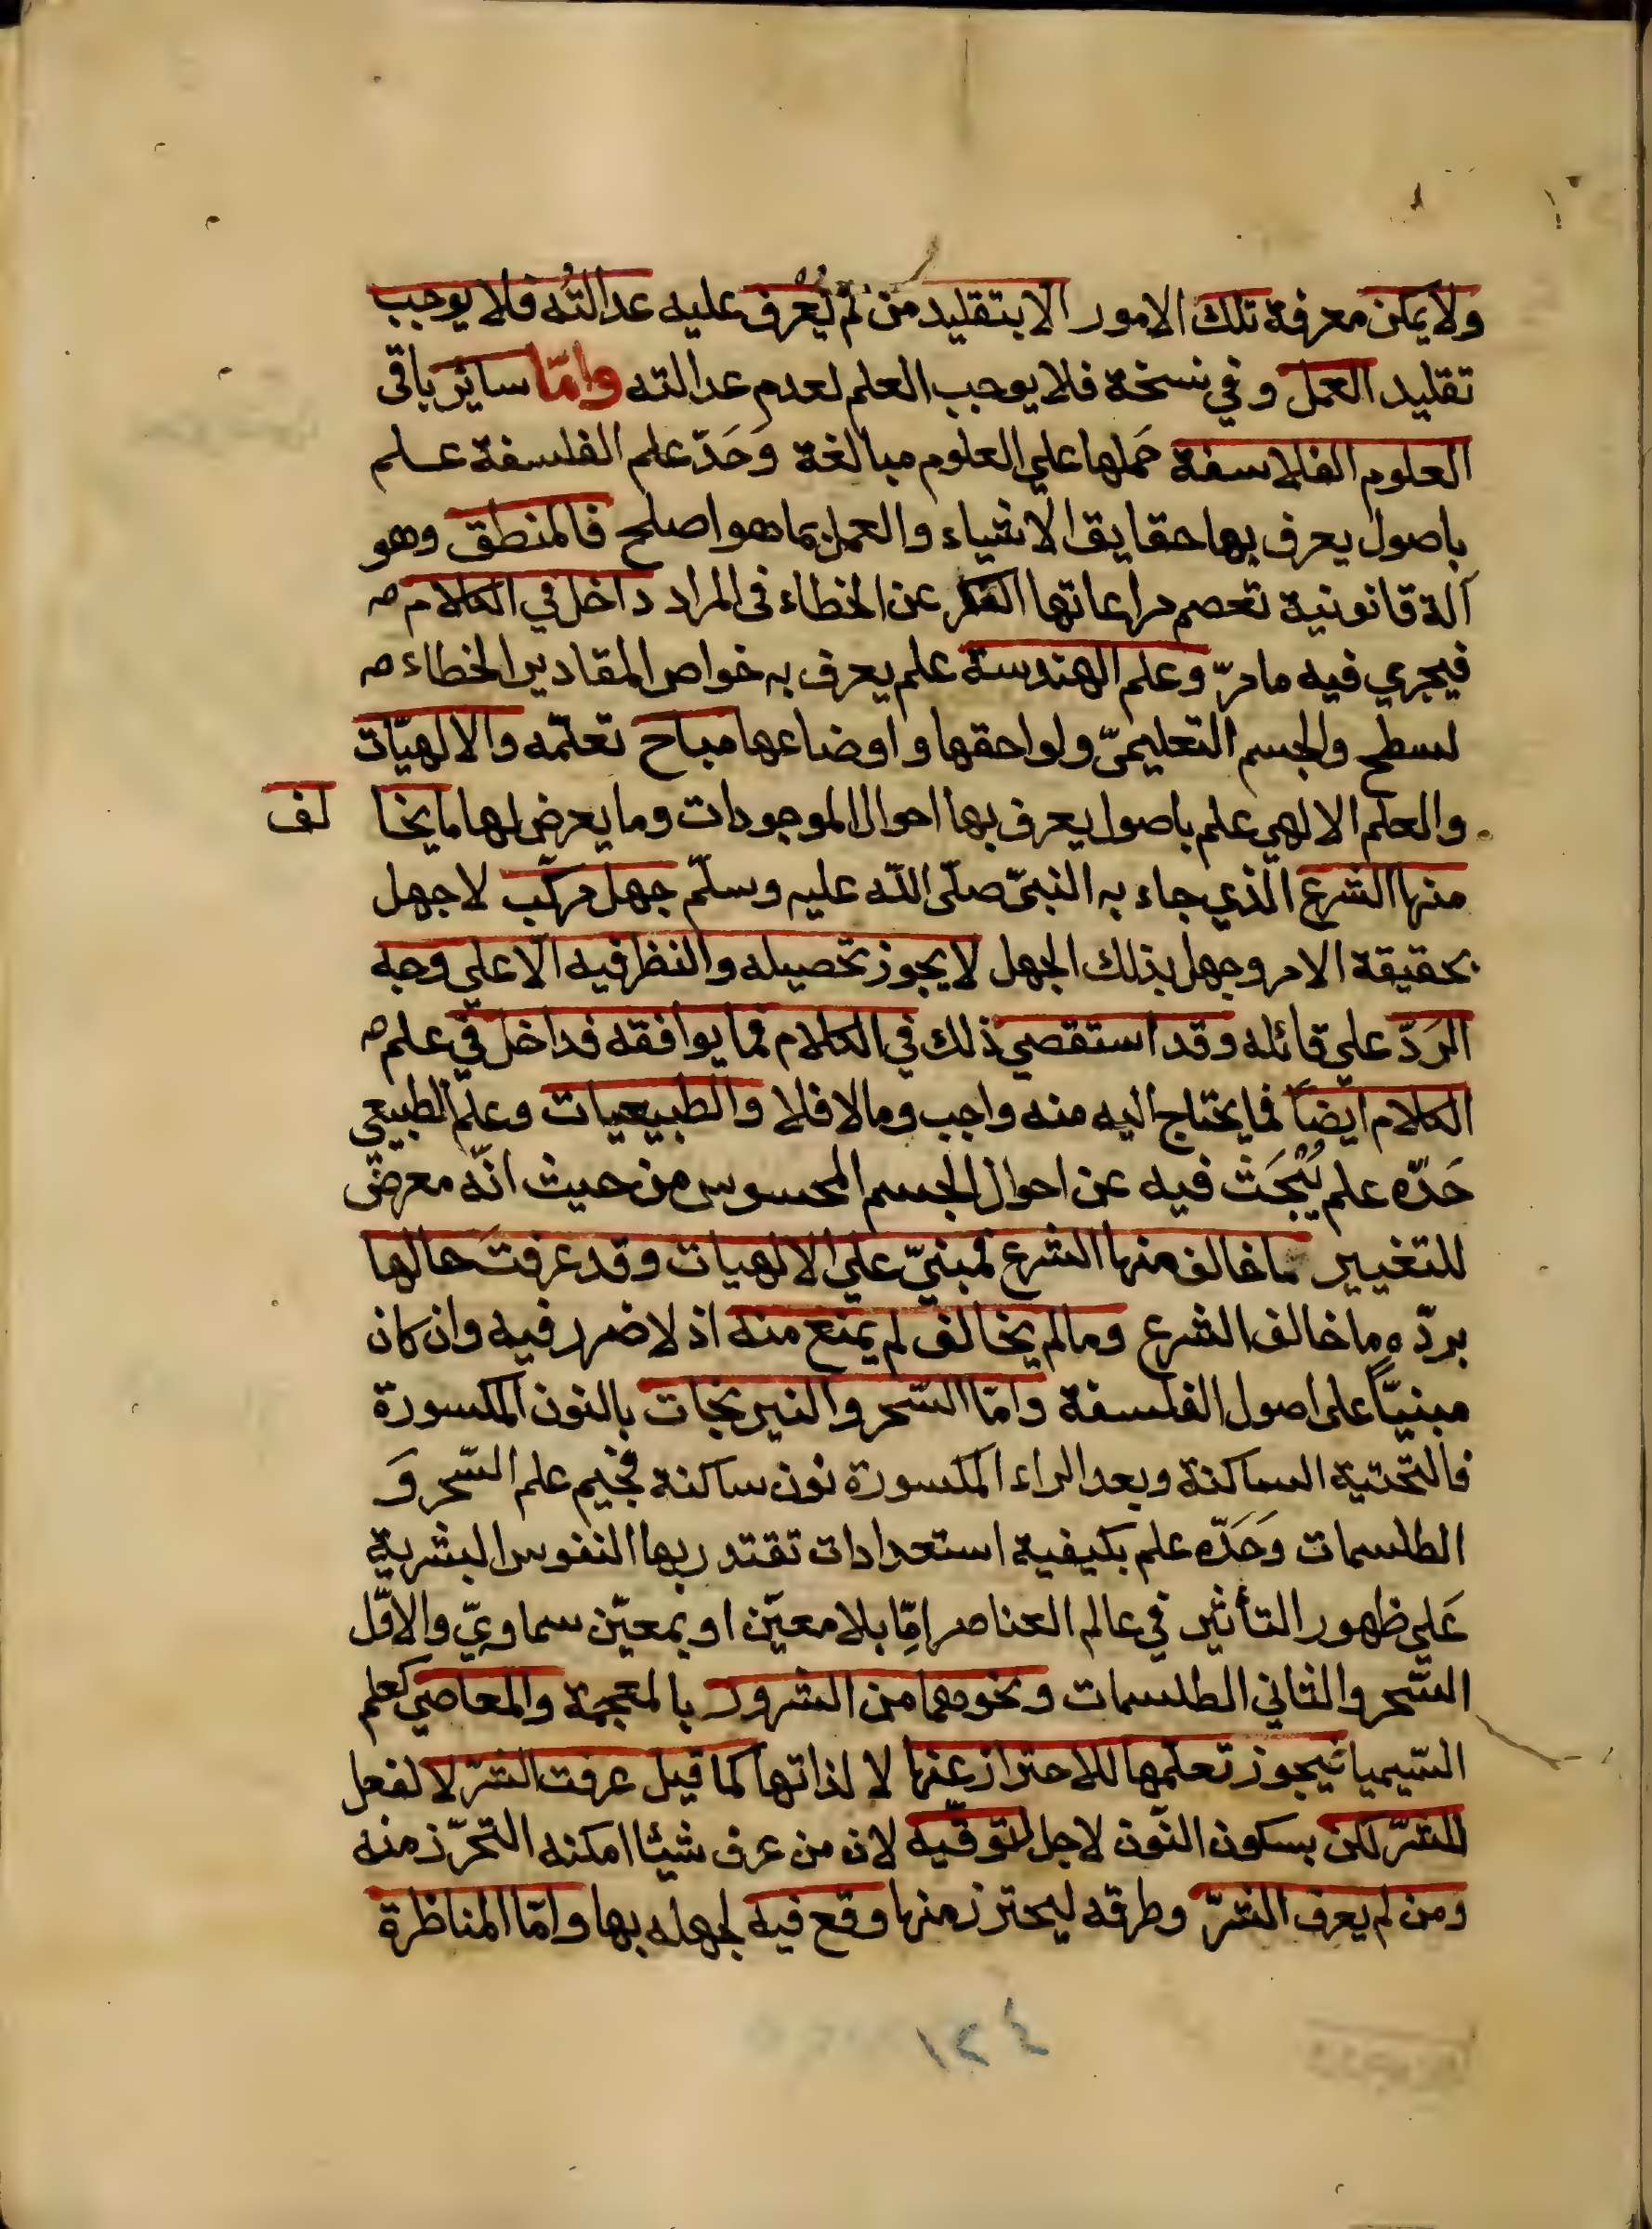 ولا يمكن معرفة تلك الامور الا بتقليد من لم يُعرف عليه عدالتُه فلا يوجب
تقليد العمل وفي نسخة فلا يوجب العلم لعدم عدالته وامّا سائر باقى
العلوم الفلاسفة حَملها على العلوم مبالغة وَحَدّ علم الفلسفة علم
باصول يعرف بها حقايق الاشياء والعمل بما هو اصلح فالمنطق وهو
آلة قانونية تعصم مراعاتها الفكر عن الخطاء فى المراد داخل في الكلام
فيجري فيه ما مرّ وعلم الهندسة علم يعرف به خواص المقادير الخطاء
لسطح والجسم التعليمىّ ولواحقها واوضاعها مباح تعلّمه والالهيّات
والعلم الالهي علم باصول يعرف بها احوال الموجودات وما يعرض لها مايخا لف
منها الشرع الّذي جاء به النبىّ صلّى اللّه عليه وسلّم جهل مركّب لا جهل
بحقيقة الامر وجهل بذلك الجهل لا يجوز تحصيله والنظر فيه الّا على وجه
الرَدّ على قائله وقد استقصي ذلك في الكلام فما يوافقه فداخل في علم
الكلام ايضاً فما يحتاج اليه منه واجب وما لا فلا والطبيعيات وعلم الطبيعي
حَدّه علم يُبْحَث فيه عن احوال الجسم المحسوس من حيث انّه معرض
للتغيير ما خالف منها الشرع فمبنيّ على الالهيات وقد عرفتَ حالها
بردّه ما خالف الشرع وما لم يخالف لم يمنع منه اذ لا ضرر فيه وان كان
مبنيّاً على اصول الفلسفة وامّا السّحر والنيرنجات بالنون المكسورة
فالتّحتية الساكنة وبعد الراء المكسورة نون ساكنة فجيم علم السّحر وَ
الطلسمات وَحَدّه علم بكيفية استعدادات تقتدر بها النفوس البشرية
عَلى ظهور التأثير في عالم العناصر امّا بلا معيّن او بمعيّن سماويّ والاوّل
السّحر والثاني الطلسمات ونحوهما من الشرور بالمعجمة والمعاصي كعلم
السّيميا فيجوز تعلّمها للاحتراز عنها لا لذاتها كما قيل عرفت الشرّ لا لفعل
للشرّ لكن بسكون النّون لاجل لتوقّيه لان من عرف شيئا امكنه التحرّز منه
ومن لم يعرف الشرّ وطرقه ليحترز منها وقع فيه لجهله بها وامّا المناظرة
١٢٤